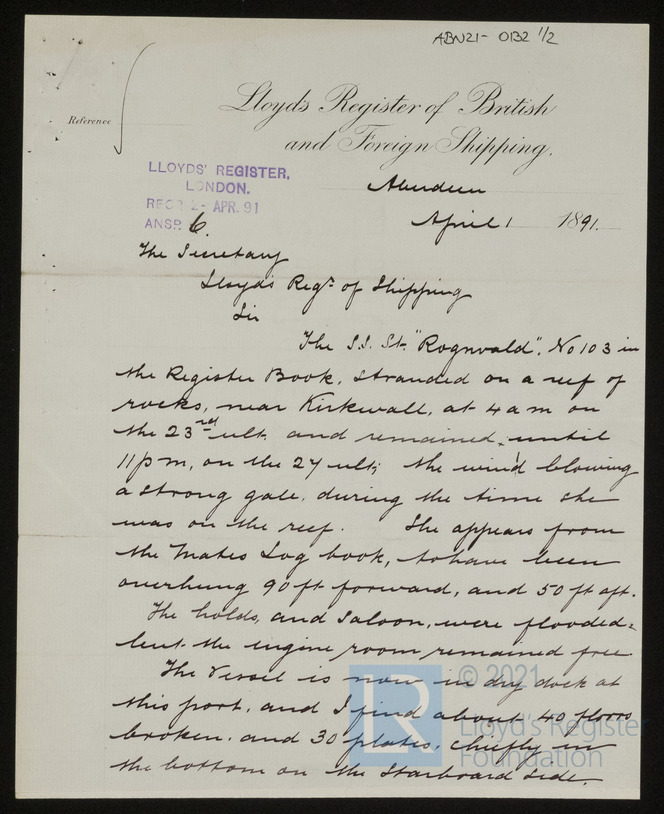 ABN21- 0132 1/2
Reference
Lloyd's Register of British
and Foreign Shipping.
LLOYDS' REGISTER,
LONDON.
REC 2- APR. 91
ANSD. 6.
Aberdeen
April 1 1891.
The Secretary
Lloyds Regr of Shipping
Sir
The S.S. St. "Rognvald", No 103 in
the Register Book, stranded on a reef of
rocks, near Kirkwall, at 4 a m on
the 23rd ult. and remained, until
11 pm, on the 27 ult; the wind blowing
a strong gale, during the time she
was on the reef. She appears from
the Mates Log book, to have been
overhung 90 ft forward, and 50 ft aft.
The holds, and Saloon, were flooded,
but the engine room remained free.
The Vessel is now in dry dock at
this port, and I find about 40 floors
broken. and 30 plates, chiefly in
the bottom on the Starboard Side.
© 2021
Lloyd's Register
Foundation